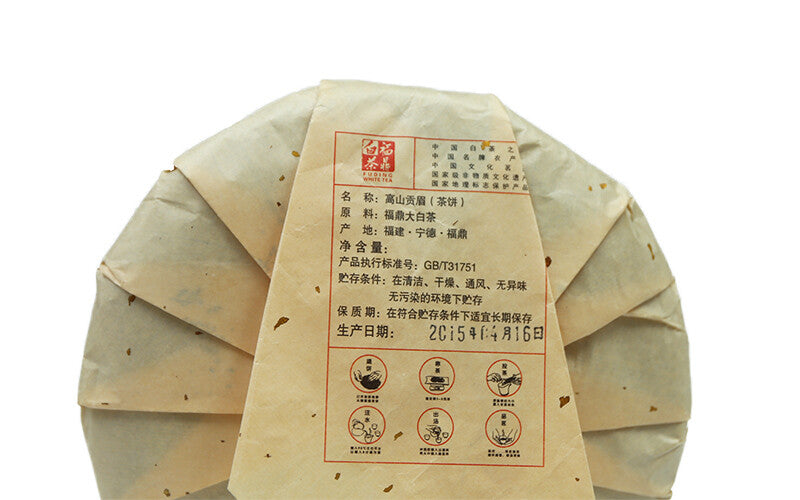 福鼎
白茶
FUDING
WHITE TEA
中国白茶之
中国名牌农产
中国文化名
国家级非物质文化遗产
国家地理标志保护产品
名 称：高山贡眉（茶饼）
原 料：福鼎大白茶
产 地：福建·宁德·福鼎
净含量：
产品执行标准号：GB/T31751
贮存条件：在清洁、干燥、通风、无异味
无污染的环境下贮存
保 质 期：在符合贮存条件下适宜长期保存
生产日期： 2015年04月16日